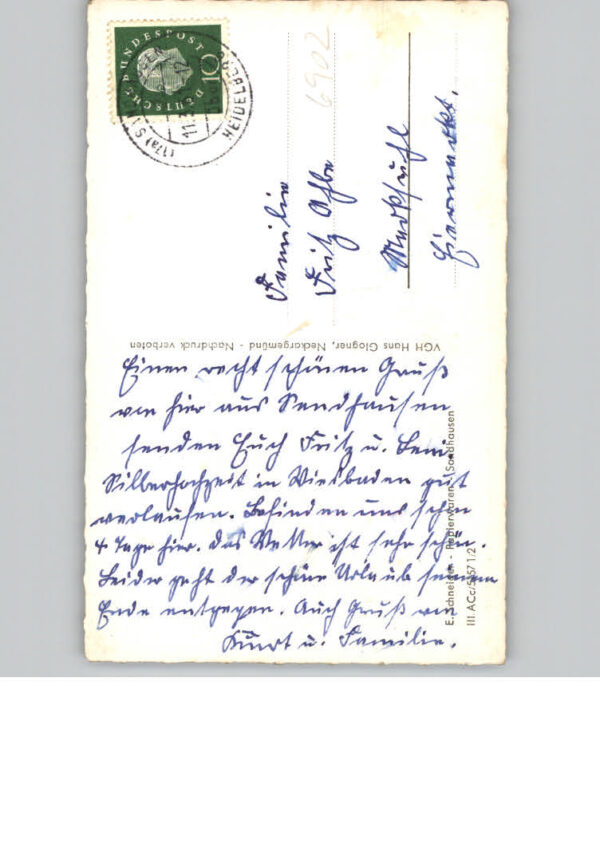 DEUTSCHE BUNDESPOST
10
HEIDELBERG
(17a)
11.
6902
Familie
Fritz
Marksuhl
Eisenach
VGH Hans Glogner, Neckargemünd - Nachdruck verboten
Einen recht schönen Gruß
von hier aus Sandhausen
senden Euch Fritz u.
Silberhochzeit in Wiesbaden gut
verlaufen. Befinden uns schon
4 Tage hier. Das Wetter ist sehr schön.
Leider geht der schöne Urlaub seinem
Ende entgegen. Auch Gruß von
Kurt u. Familie.
E. Schneider - Papierwaren - Sandhausen
III.ACc/5257 1:2